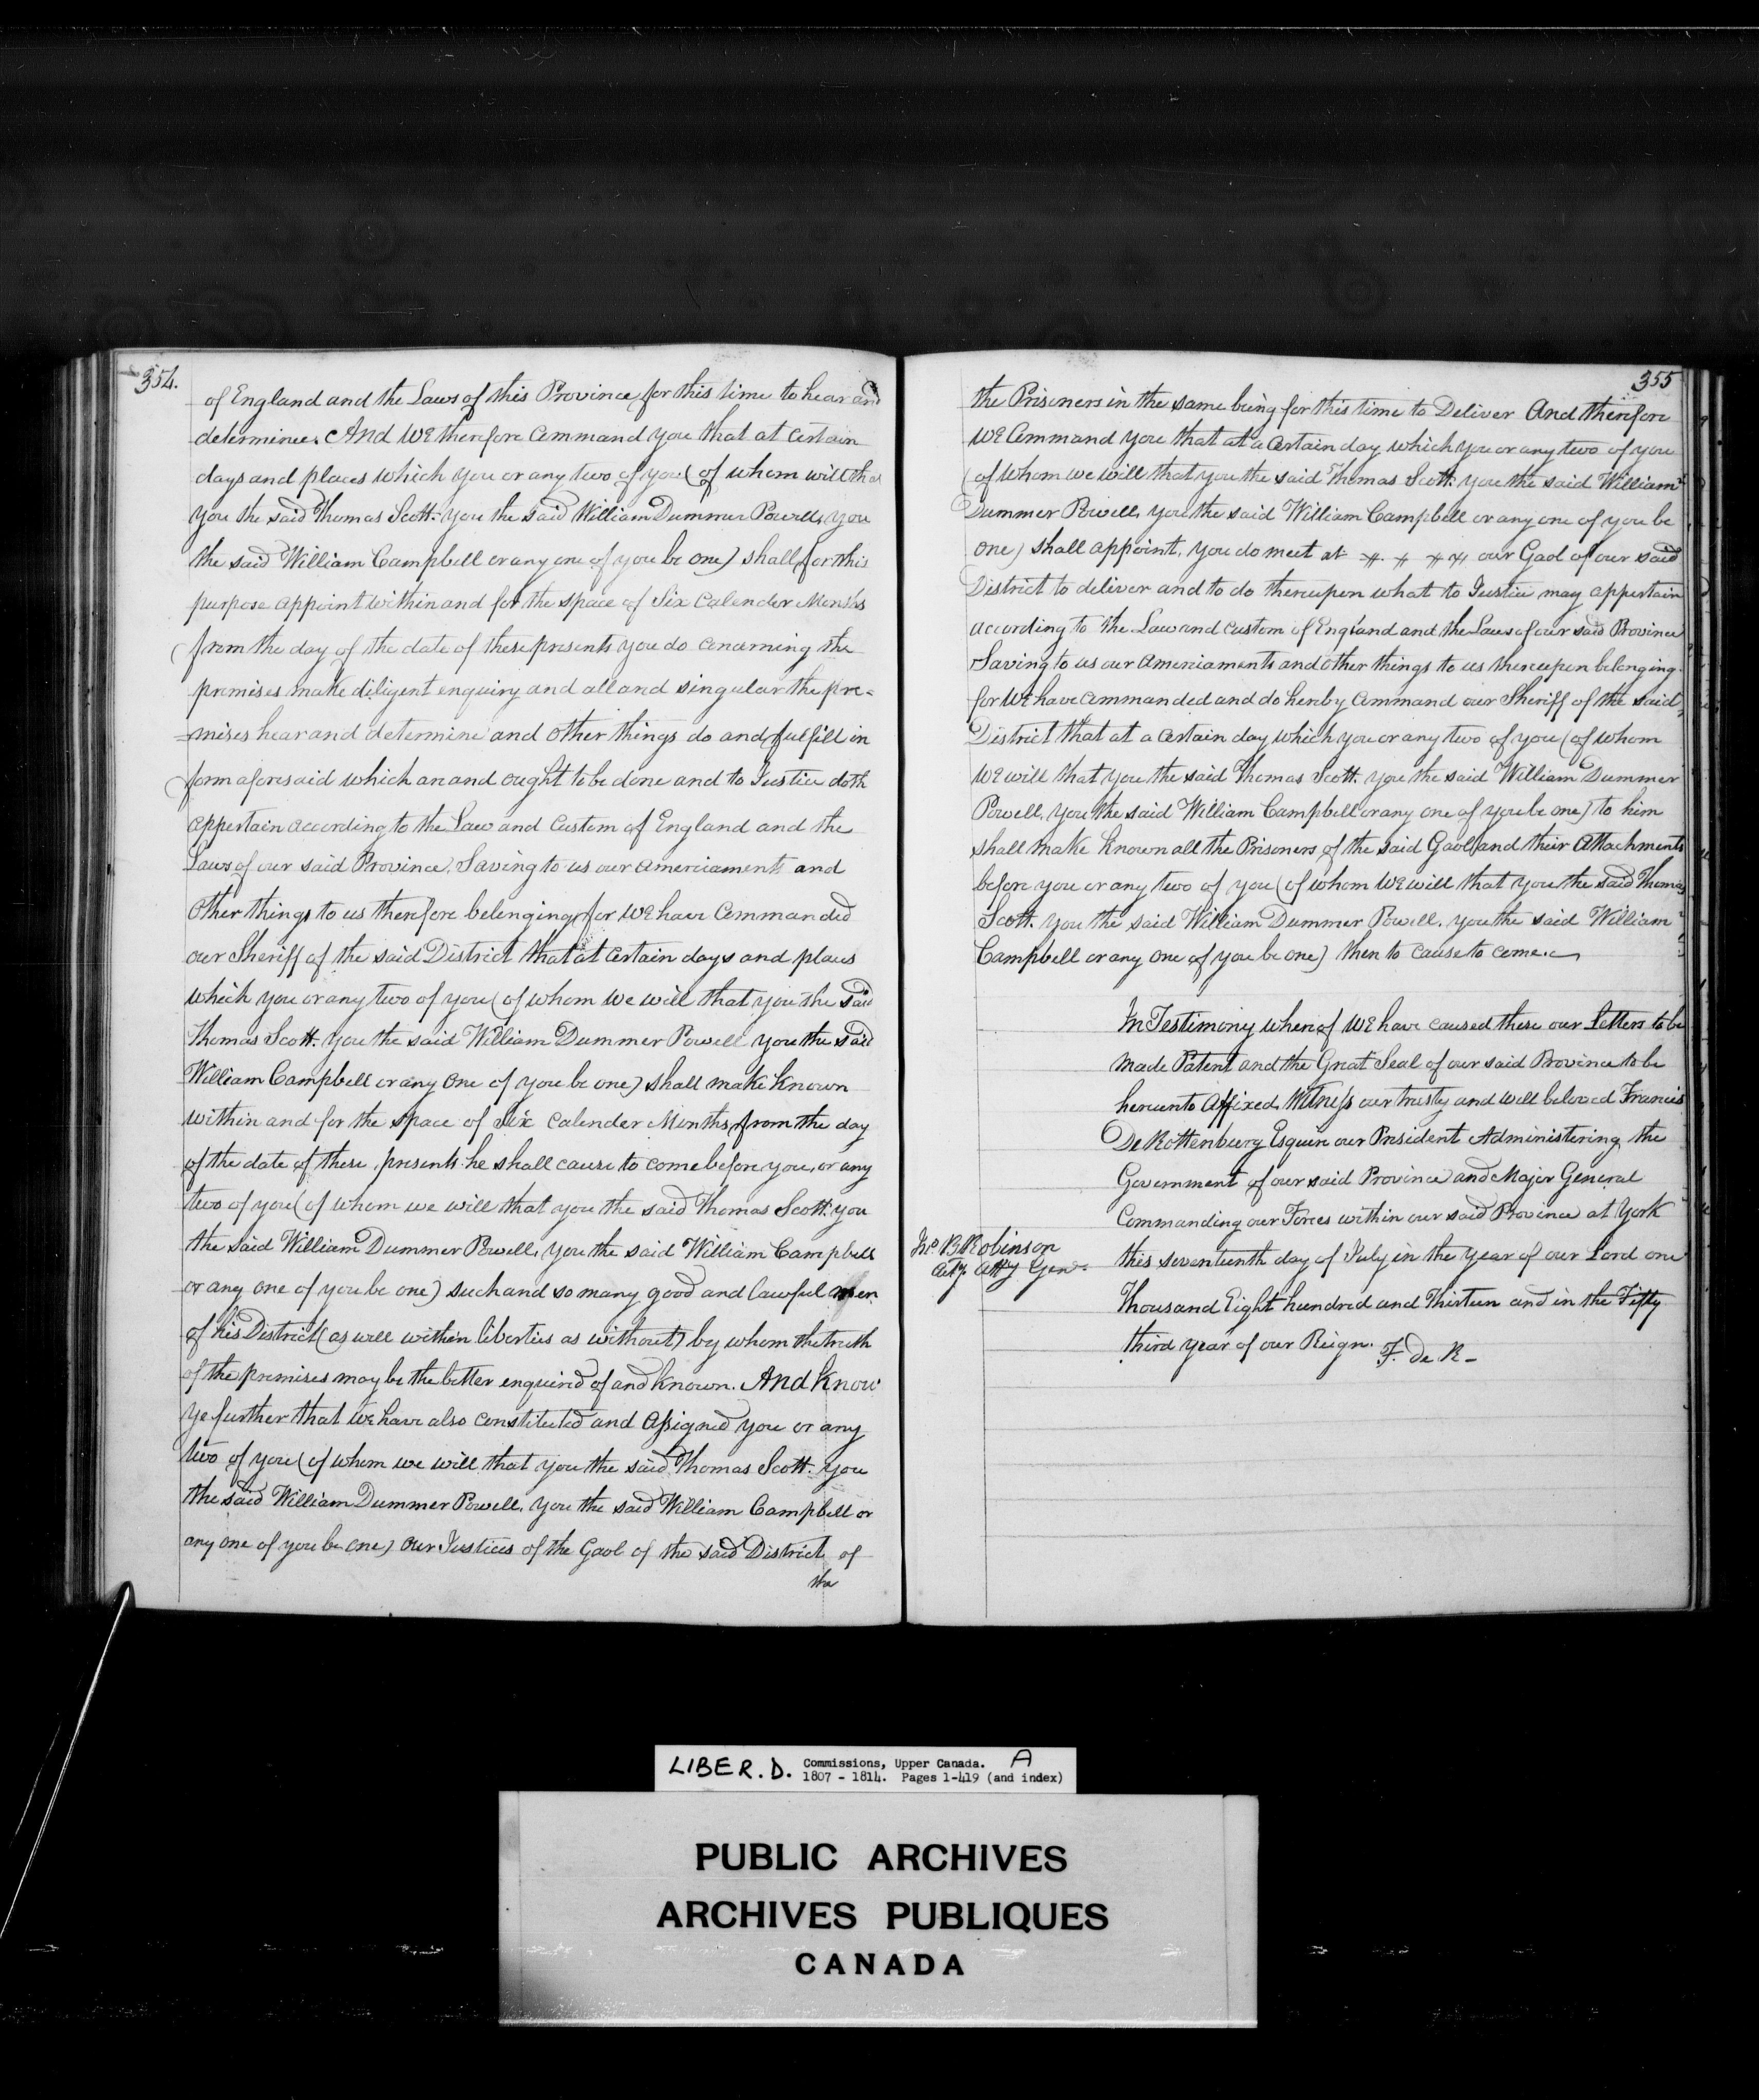 354.
of England and the Laws of this Province for this time to hear and
determine. And We therefore Command you that at Certain
days and places which you or any two of you (of whom will that
you the said Thomas Scott. you the said William Dummer Powell, you
the said William Campbell or any one of you be one) shall for this
purpose appoint within and for the space of Six Calender Months
from the day of the date of these presents you do concerning the
premises make diligent enquiry and all and singular the pre=
=mises hear and determine and other things do and fulfill in
form aforesaid which an and ought to be done and to Justice doth
appertain according to the Law and Custom of England and the
Laws of our said Province, Saving to us our amerciaments and
Other things to us therefore belonging, for We have Commanded
our Sheriff of the said District that at certain days and places
which you or any two of you (of whom we will that you the said
Thomas Scott. you the said William Dummer Powell you the said
William Campbell or any One of you be one) shall make known
within and for the space of Six Calender Months from the day
of the date of these presents he shall cause to come before you, or any
two of you (of whom we will that you the said Thomas Scott. you
the said William Dummer Powell, you the said William Campbell
or any one of you be one) such and so many good and lawful men
of his District (as well within liberties as without) by whom the truth
of the premises may be the better enquired of and known. And Know
Ye further that We have also constituted and Assigned you or any
two of you (of whom we will that you the said Thomas Scott. you
the said William Dummer Powell, you the said William Campbell or
any one of you be one) Our Justices of the Gaol of the said District of
the
355
the Prisoners in the same being for this time to Deliver And therefore
We Command you that at a Certain day which you or any two of you
(of whom we will that you the said Thomas Scott. you the said William
Dummer Powell, you the said William Campbell or any one of you be
one) shall appoint, you do meet at our Gaol of our said
District to deliver and to do thereupon what to Justice may appertain
according to the Law and Custom of England and the Laws of our said Province
Saving to us our Amerciaments and other things to us thereupon belonging.
for We have Commanded and do hereby Command our Sheriff of the said
District that at a certain day which you or any two of you (of whom
We will that you the said Thomas Scott. you the said William Dummer
Powell, you the said William Campbell or any one of you be one) to him
shall make known all the Prisoners of the said Gaol and their Attachments
before you or any two of you (of whom We will that you the said Thomas
Scott. you the said William Dummer Powell. you the said William
Campbell or any one of you be one) then to cause to come.
In Testimony whereof We have caused these our Letters to be
made Patent and the Great Seal of our said Province to be
hereunto Affixed, Witness our trusty and well beloved Francis
De Rottenburg Esquire our President Administering the
Government of our said Province and Major General
Commanding our Forces within our said Province at York
this seventeenth day of July in the year of our Lord one
Thousand Eight hundred and Thirteen and in the Fifty
third year of our Reign. F. De R-
Jno. B Robinson
Actg. Atty Genl.
LIBER. D. Commissions, Upper Canada. A
1807 - 1814. Pages 1-419 (and index)
PUBLIC ARCHIVES
ARCHIVES PUBLIQUES
CANADA